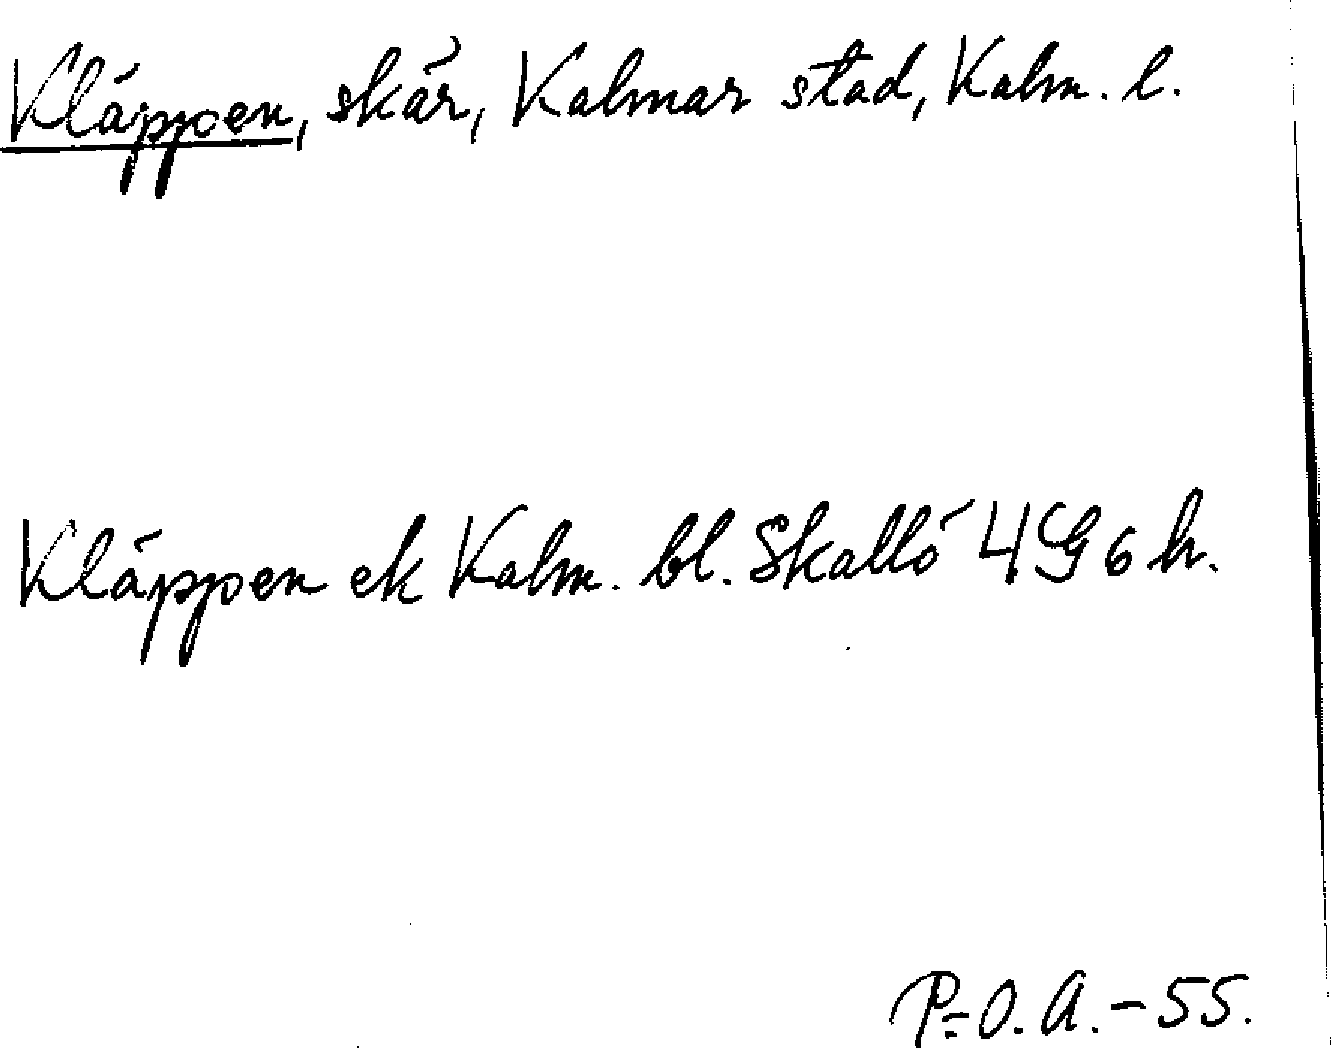 Kläppen, skär, Kalmar stad, Kalm. l.
Kläppen ek Kalm. bl. Skallö 4G6h.
P-O.A.-55.